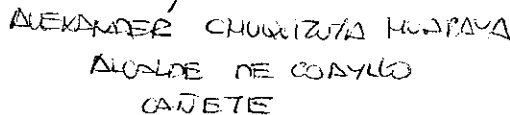 ALEXANDER CHUQUIZUTA HUAPAYA
ALCALDE DE COAYLLO
CAÑETE